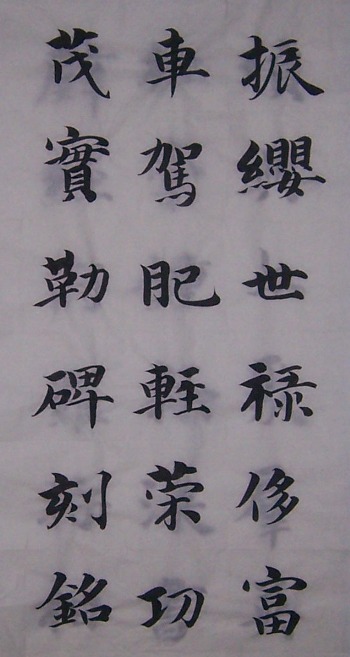 振纓世禄侈富
車駕肥軽荣功
茂實勒碑刻銘